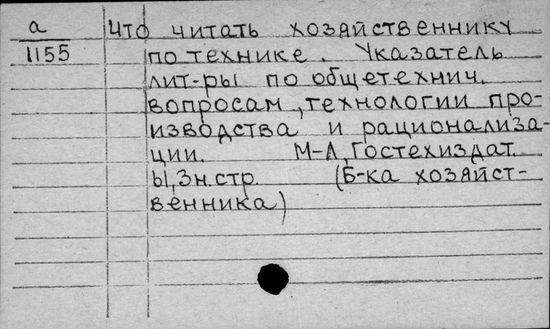 а
1155
Что читать хозяйственнику
по технике. Указатель
лит-ры по общетехнич.
вопросам, технологии про-
изводства и рационализа-
ции. М-Л, Гостехиздат.
Ы, 3н. стр. (Б-ка хозяйст-
венника)